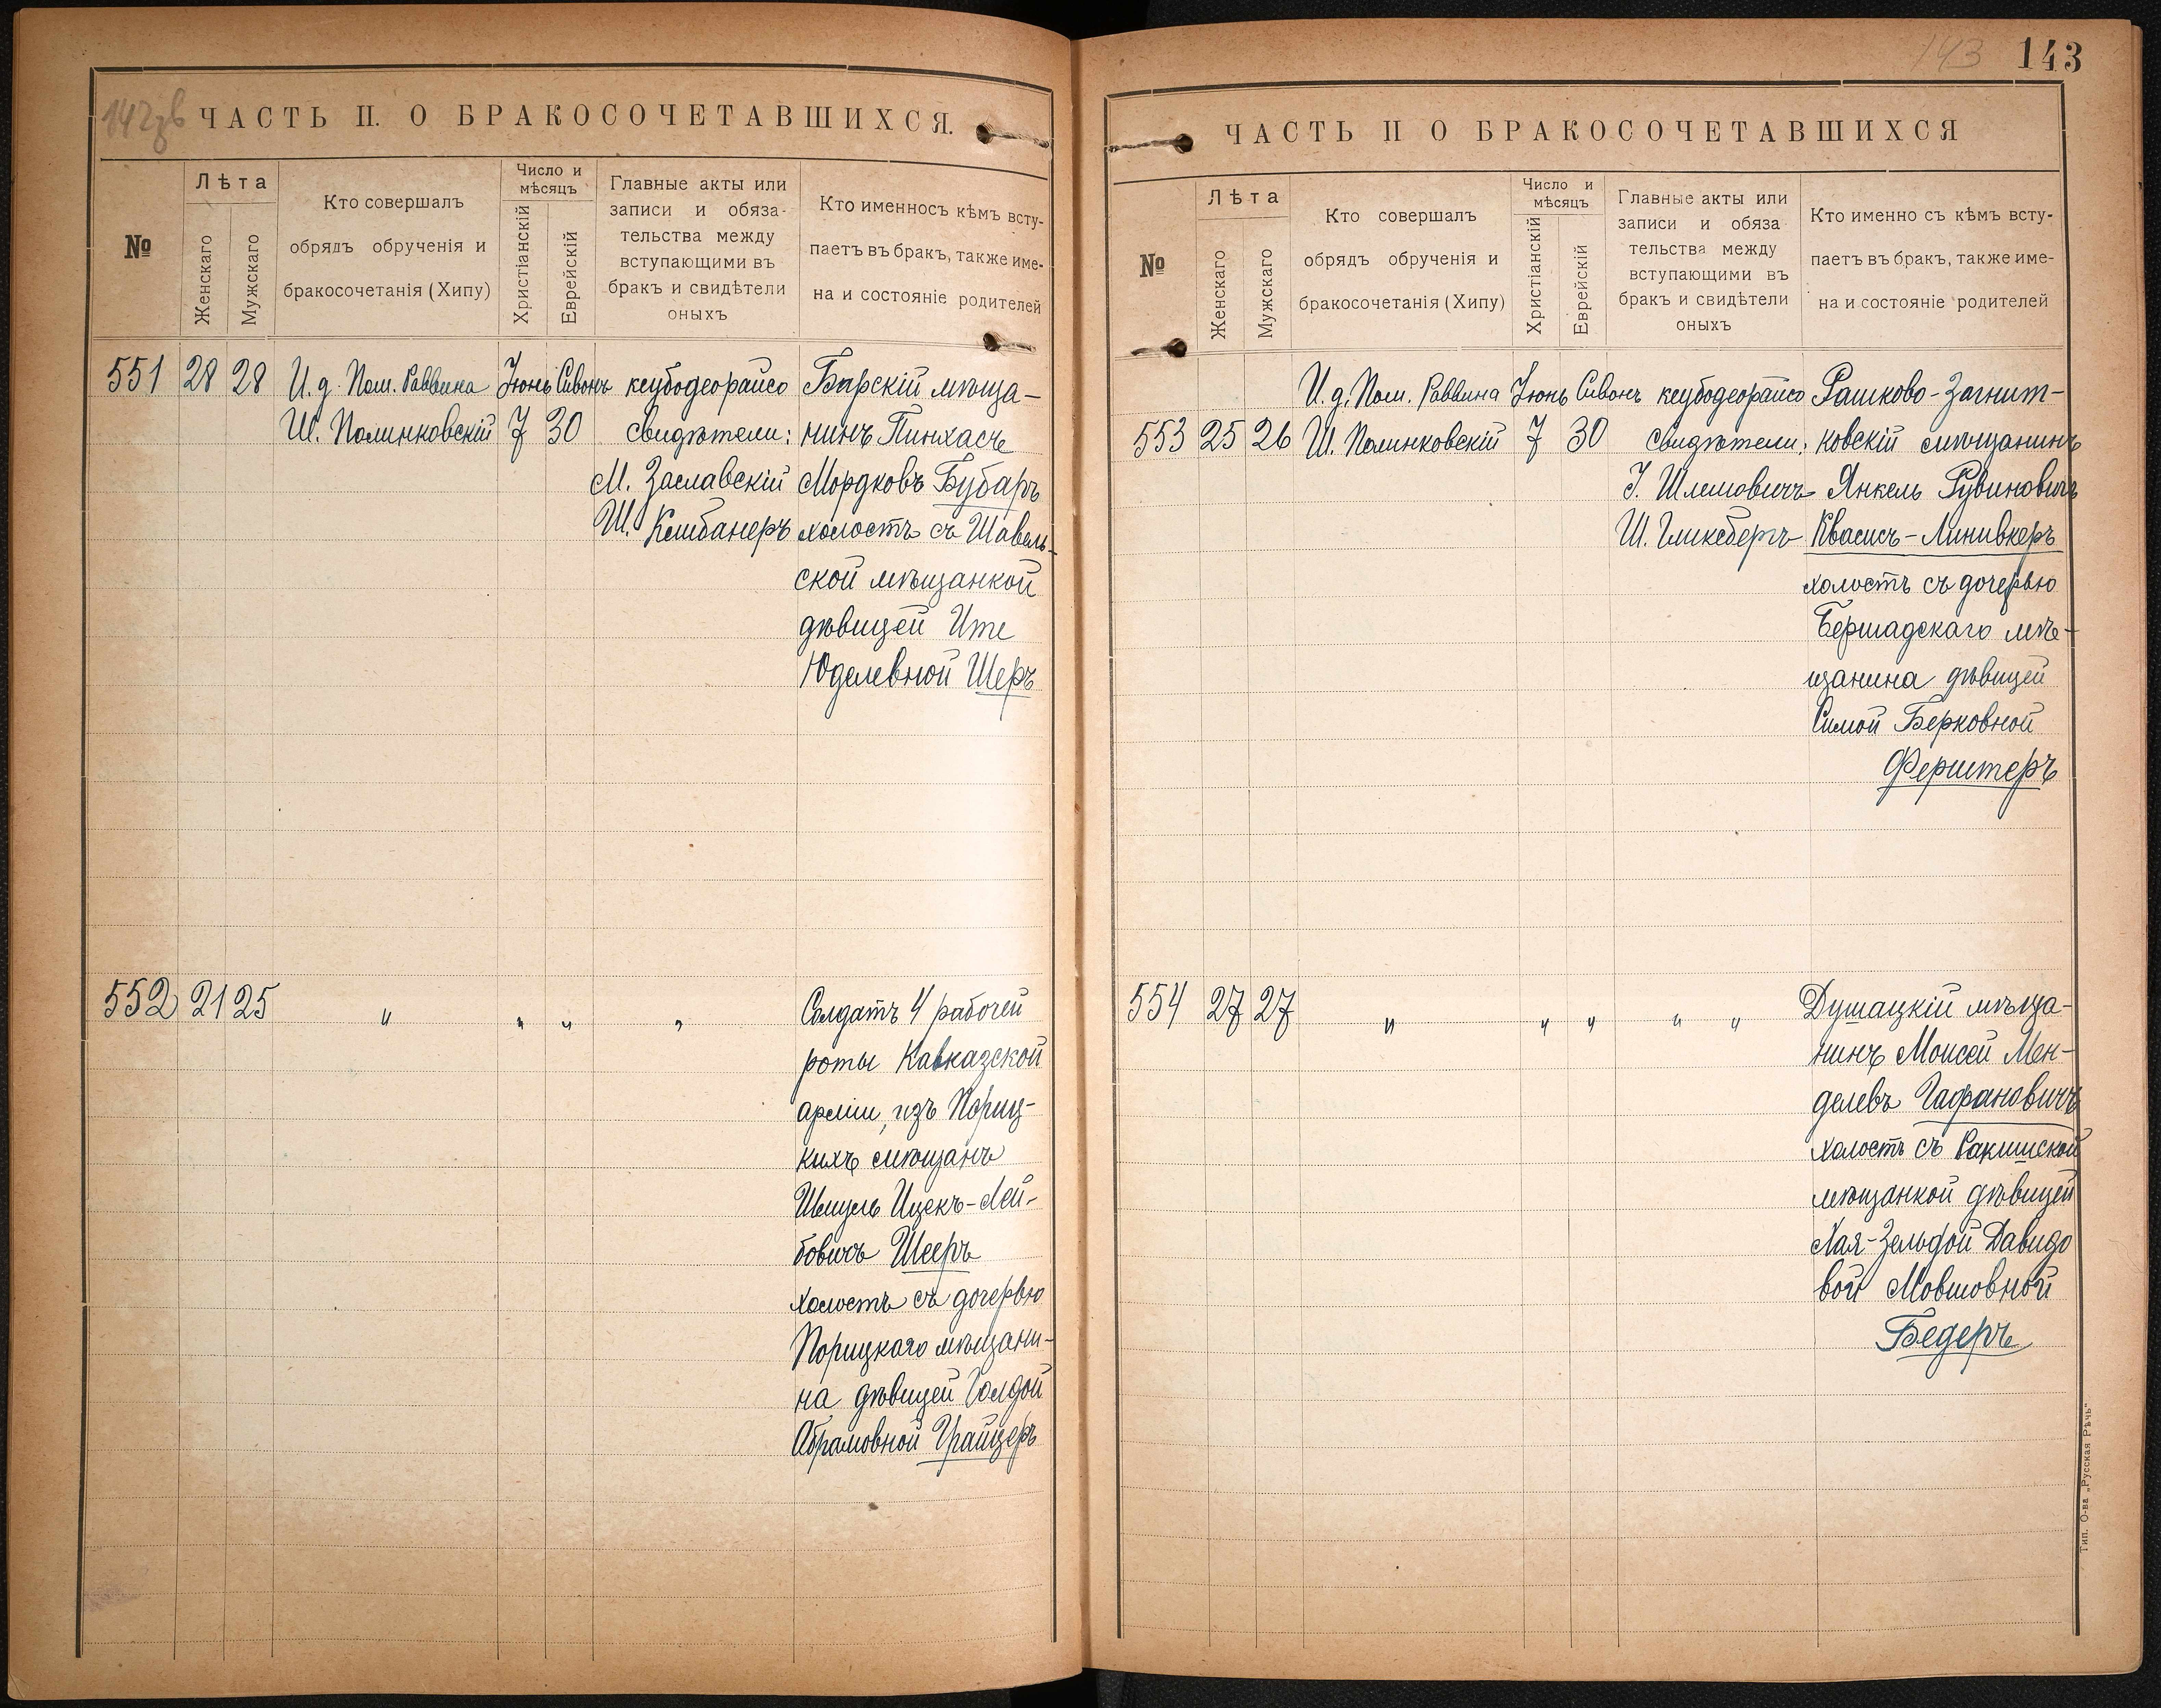 142зв
ЧАСТЬ II. О БРАКОСОЧЕТАВШИХСЯ.
№
Лѣта
Женскаго
Мужскаго
Кто совершалъ
обрядъ обрученія и
бракосочетанія (Хипу)
Число и
мѣсяцъ
Христіанскій
Еврейскій
Главные акты или
записи и обяза-
тельства между
вступающими въ
бракъ и свидѣтели
оныхъ
Кто именносъ кѣмъ всту-
паетъ въ бракъ, также име-
на и состояніе родителей
551 28 28 И.д. Пом. Раввина Іюнь Сивонъ кеубодеорайсо Барскій мѣща-
Ш. Полинковскій 7 30 свидѣтели: нинъ Пинхасъ
М. Заславскій Мордковъ Бубаръ
Ш. Кешбанеръ холостъ съ Шавель-
ской мѣщанкой
дѣвицей Ите
Юделевной Шеръ
552 21 25 " " " " Солдатъ 4 рабочей
роты Кавказской
арміи, изъ Пориц-
кихъ мѣщанъ
Шмуль Ицекъ-Лей-
бовичъ Шееръ
холостъ съ дочерью
Порицкаго мѣщани-
на дѣвицей Голдой
Абрамовной Грайцеръ
143
143
ЧАСТЬ II О БРАКОСОЧЕТАВШИХСЯ
№
Лѣта
Женскаго
Мужскаго
Кто совершалъ
обрядъ обрученія и
бракосочетанія (Хипу)
Число и
мѣсяцъ
Христіанскій
Еврейскій
Главные акты или
записи и обяза
тельства между
вступающими въ
бракъ и свидѣтели
оныхъ
Кто именно съ кѣмъ всту-
паетъ въ бракъ, также име-
на и состояніе родителей
И.д. Пом. Раввина Іюнь Сивонъ кеубодеорайсо Рашково-Загнит-
553 25 26 Ш. Полинковскій 7 30 свидѣтели: ковскій мѣщанинъ
І. Шлемовичъ Янкель Рувиновичъ
Ш. Гликсбергъ Квасисъ-Линивкеръ
холостъ съ дочерью
Бершадскаго мѣ-
щанина дѣвицей
Симой Берковной
Ферштеръ
554 27 27 " " " " " Душацкій мѣща-
нинъ Моисей Мен-
делевъ Гафановичъ
холостъ съ Ракишской
мѣщанкой дѣвицей
Хая-Зельдой Давидо
вой Мовшовной
Бедеръ
Тип. О-ва „Русская Рѣчь“